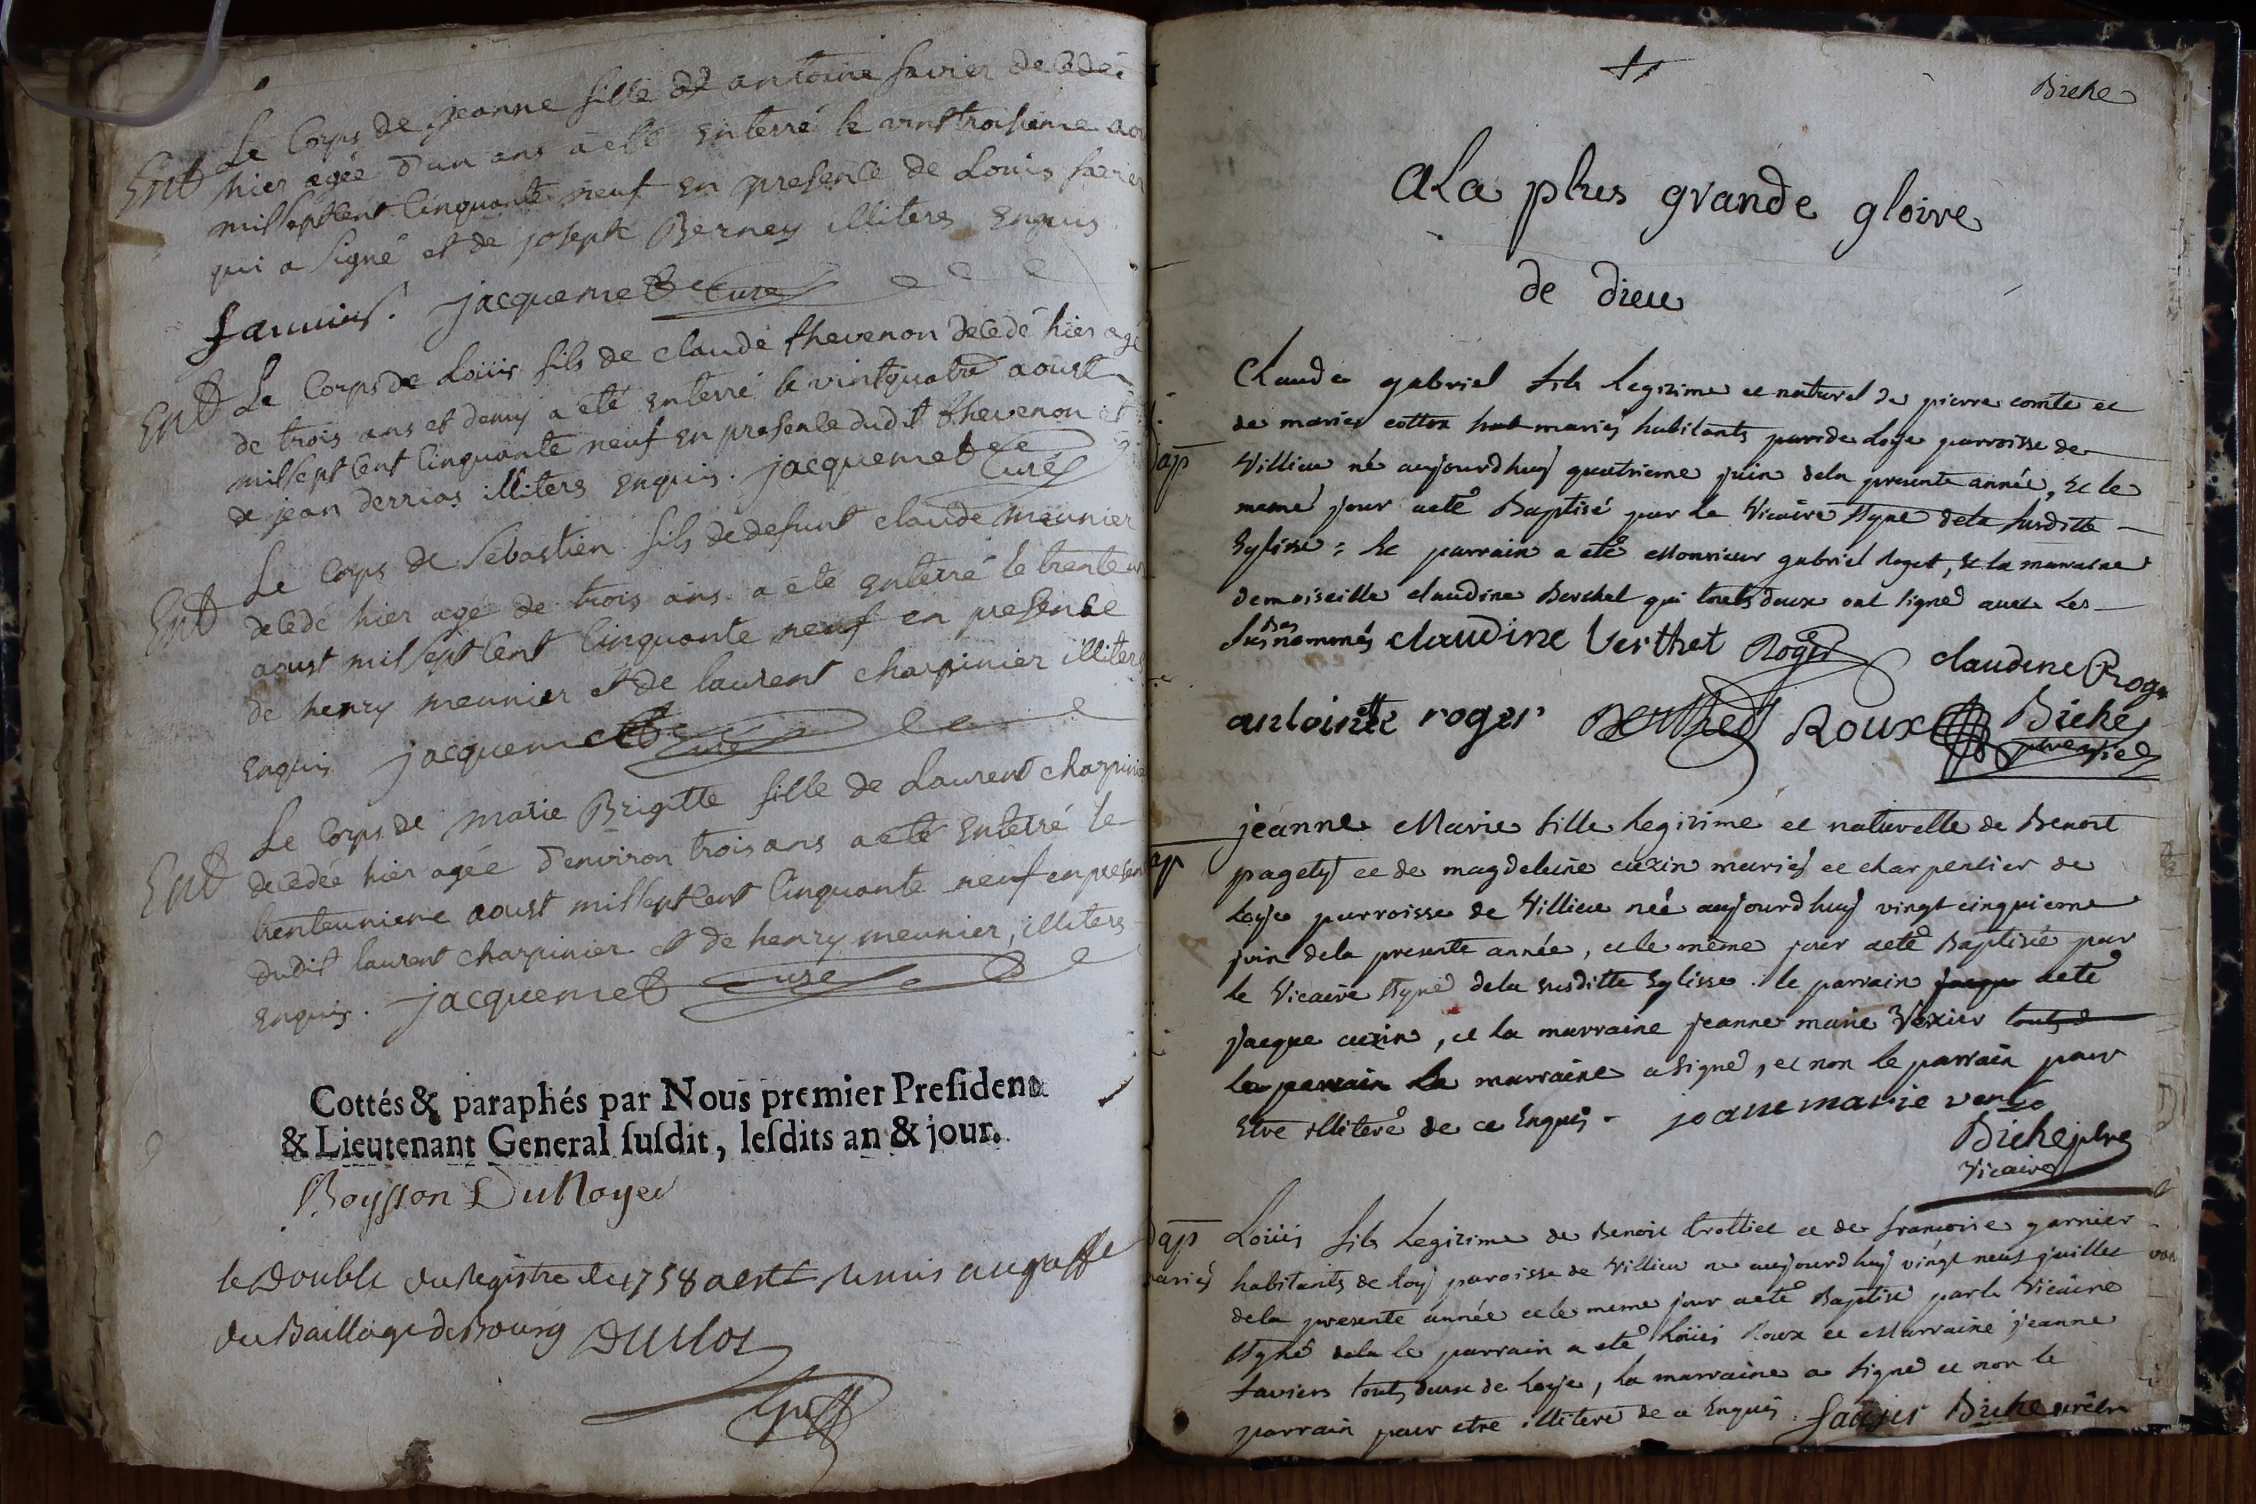 Le Corps de jeanne fille de antoine favier decedée
Ent hier agée d'un ans a eté enterré le vint troisieme aou
mil sept cent cinquante neuf en presence de Louis favier
qui a signé et de joseph Berney illiteres enquis
jacquemet curé
Ent Le Corps de Loüis fils de claude thevenon decedé hier agé
de trois ans et demy a eté enterré le vint quatre aoust
mil sept cent cinquante neuf en presence dudit thevenon et
de jean derrias illiteres enquis. jacquemet curé
Le Corps de Sebastien fils de defunt claude meunier
Ent decedé hier agé de trois ans a eté enterré le trente un
aoust mil sept cent cinquante neuf en presence
de henry meunier et de laurent charpinier illiteres
enquis jacquemet curé
Le Corps de marie Brigitte fille de Laurent charpinier
Ent decedée hier agée d'environ trois ans a eté enterré le
trenteunieme aoust mil sept cent cinquante neuf en presen
dudit laurent charpinier et de henry meunier, illiteres
enquis. jacquemet curé
Cottés & paraphés par Nous premier Président
& Lieutenant General susdit, lesdits an & jour.
le Double du Registre de 1758 a esté remis au greffe
du Baillage de Bourg
Biche
A La plus grande gloire
de dieu
Claude gabriel fils legitime et naturel de pierre comte et
de marie cotton mariés habitants de Loye parroisse de
Bap Villieu né aujourdhuy quatrieme juin dela presente année, et le
meme jour a eté Baptisé par le Vicaire signé dela susditte
Eglisse: le parrain a eté Monsieur gabriel Roger, et la marraine
demoiselle claudine Berthet qui touts deux ont signé avec les
susnommés claudine berthet Roger claudine Roger
antoinette roger Berthet Roux Biche
jeanne Marie fille legitime et naturelle de Benoit
Bap pagety et de magdeleine cuzin mariés et charpentier de
Loye parroisse de Villieu née aujourdhuy vingt cinquieme
juin dela presente année, et le même jour a eté Baptisée par
le Vicaire signé dela susditte Eglisse. le parrain a eté
jacque cuzin, et la marraine jeanne marie
la marraine a signé, et non le parrain pour
Etre illiteré de ce Enquis.
Biche ptre
Vicaire
Bap Loüis fils legitime de Benoit trottiet et de francoise garnier
mariés habitants de loy paroisse de Villieu né aujourdhuy vingt neuf juillet
dela presente année et le meme jour a eté Baptisé par le Vicaire
signé le parrain a eté Loüis Roux et Marraine jeanne
faviers touts deux de Loye, la marraine a signé et non le
parrain pour etre illiteré de ce Enquis. Biche